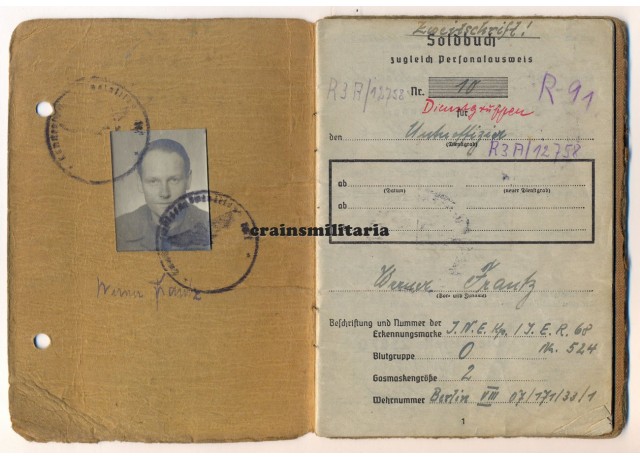 Werner Frantz
crainsmilitaria
Zweitschrift!
Soldbuch
zugleich Personalausweis
R3A/12758
Nr. 10
R-91
Dienstgruppen
für
den Unteroffizier
(Dienstgrad)
R3A/12758
ab
(Datum) (neuer Dienstgrad)
ab
Werner Frantz
(Vor- und Zuname)
Beschriftung und Nummer der
Erkennungsmarke I.N.E. Kp. / I.E.R. 68
Nr. 524
Blutgruppe O
Gasmaskengröße 2
Wehrnummer Berlin VIII 07/171/33/1
1